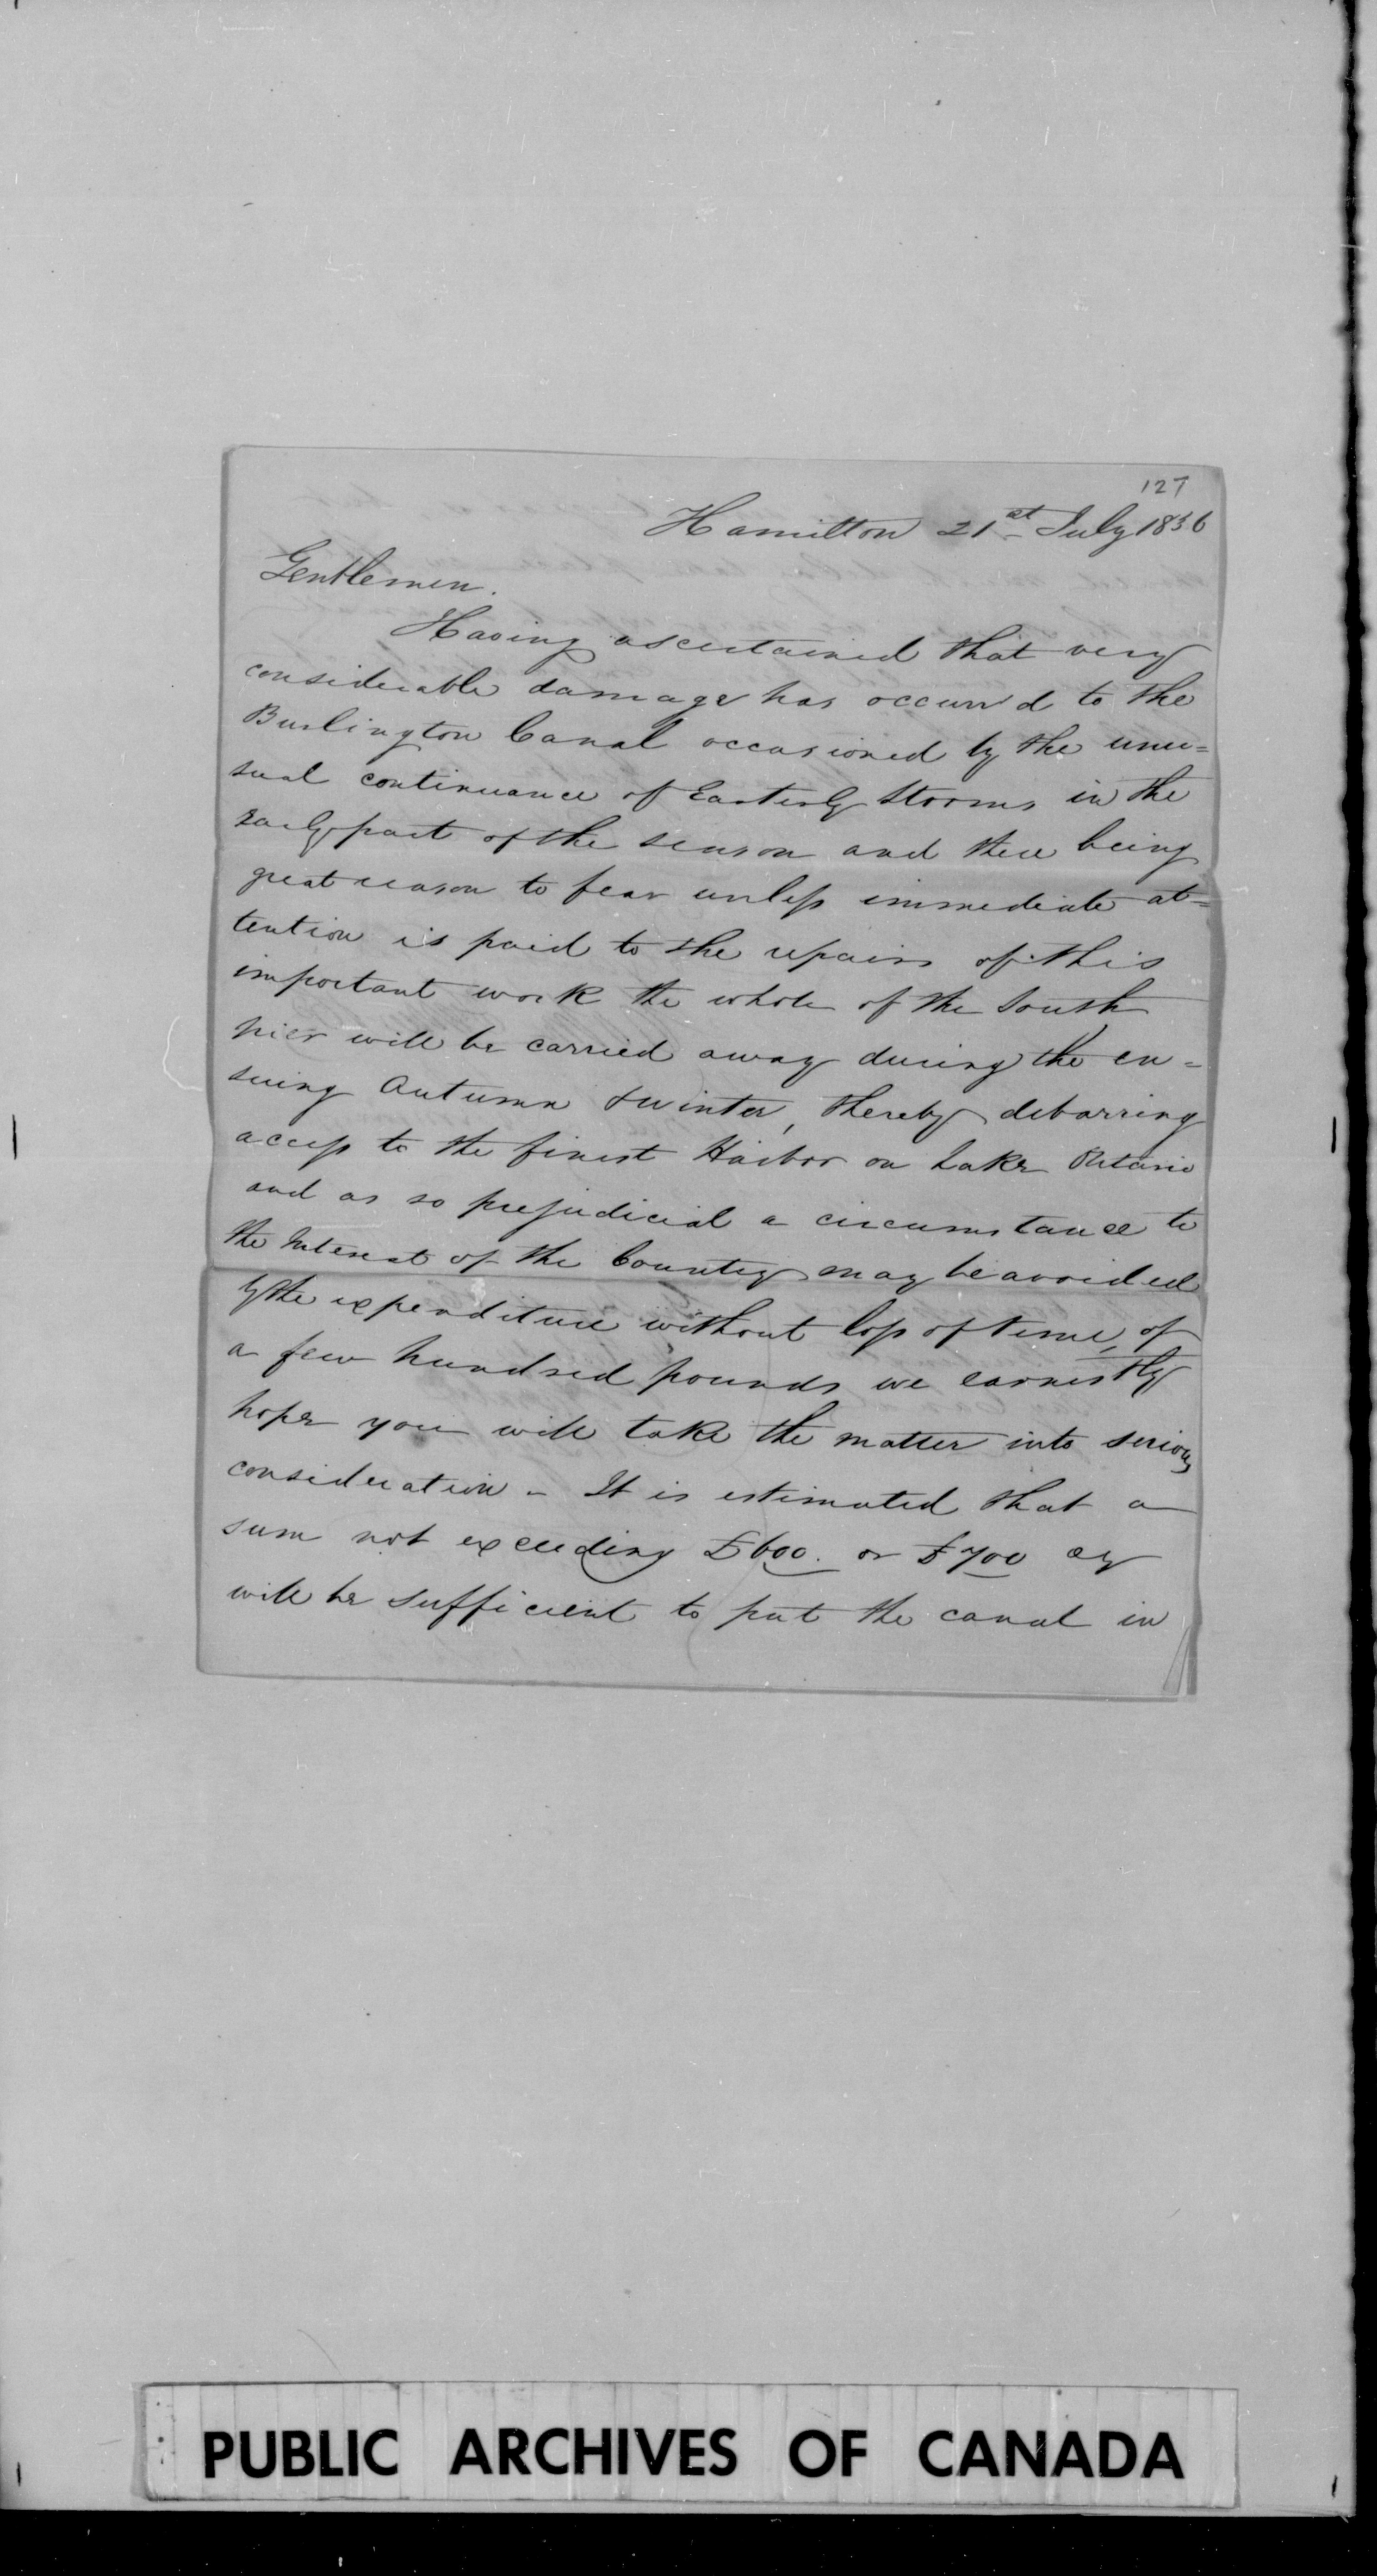 127
Hamilton 21st July 1836
Gentlemen.
Having ascertained that very
considerable damage has occurr'd to the
Burlington Canal occasioned by the unu=
sual continuance of Easterly Storms in the
early part of the season and there being
great reason to fear unless immediate at=
tention is paid to the repairs of this
important work the whole of the South
pier will be carried away during the en=
suing Autumn & Winter, thereby debarring
access to the finest Harbor on Lake Ontario
and as so prejudicial a circumstance to
the Interest of the Country may be avoided
by the expenditure without loss of time, of
a few hundred pounds we earnestly
hope you will take the matter into serious
consideration - It is estimated that a
sum not exceeding £600. or £700 cy
will be sufficient to put the canal in
PUBLIC ARCHIVES OF CANADA